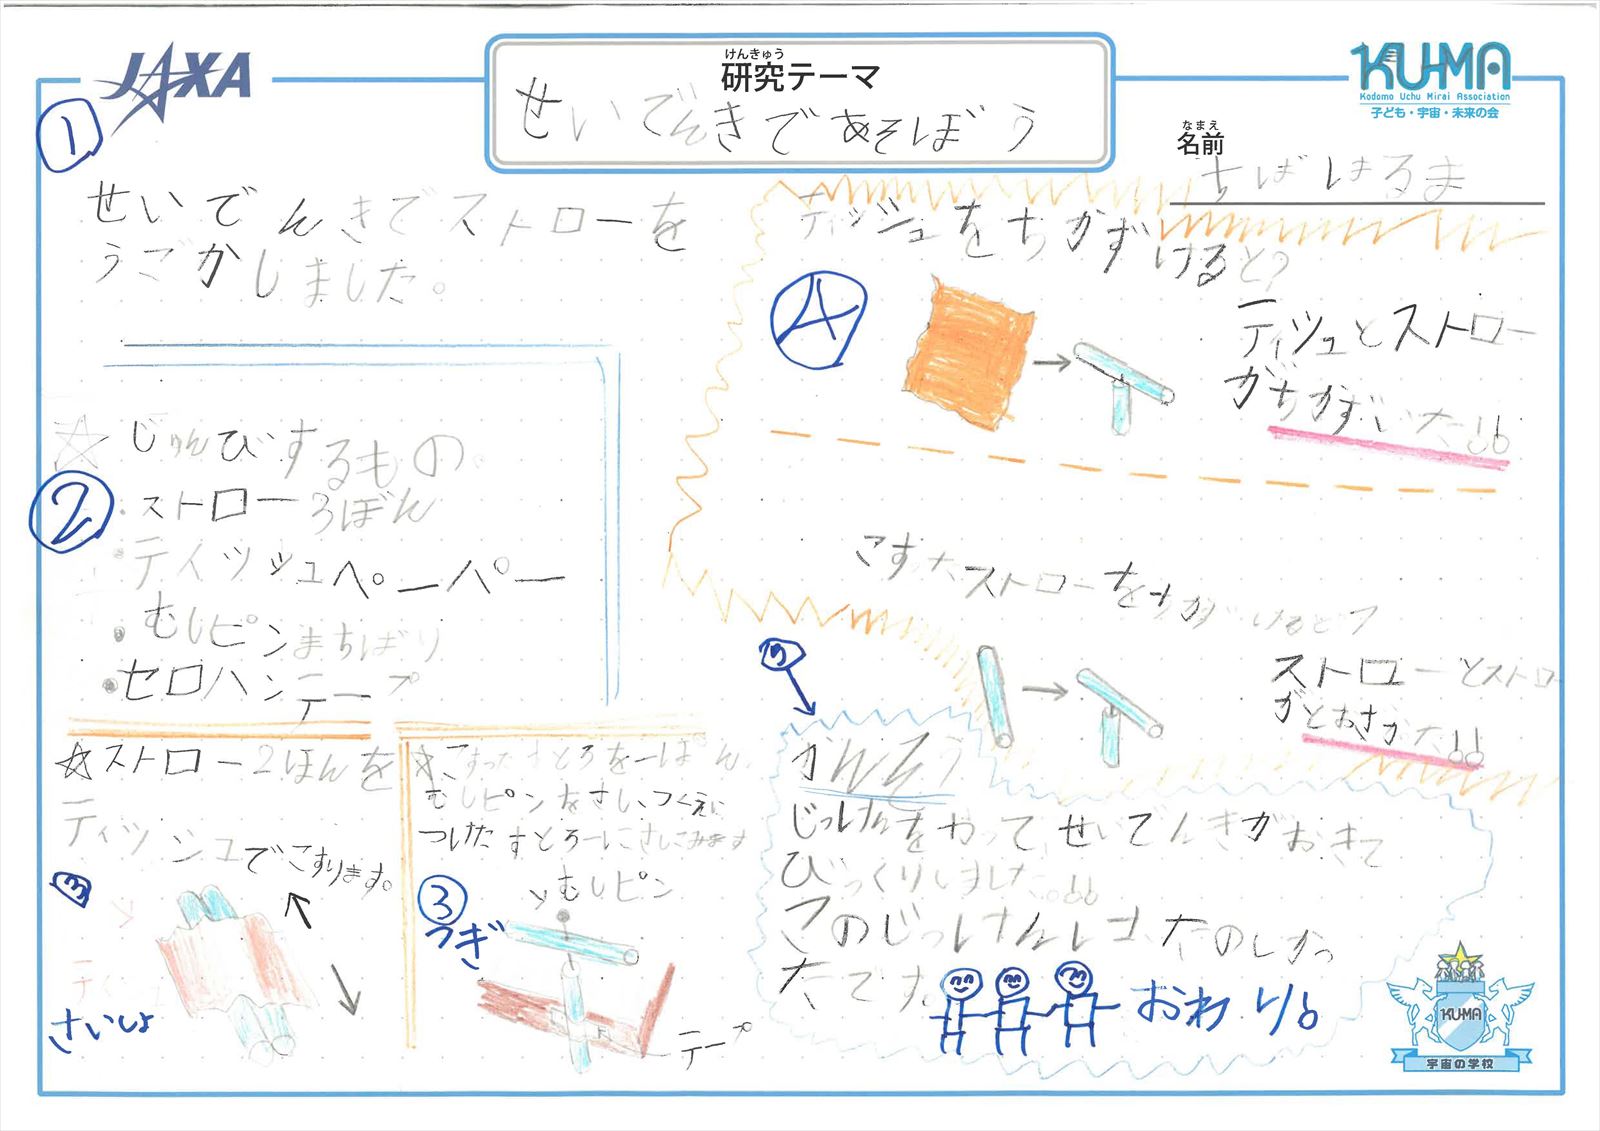 JAXA
けんきゅう
研究テーマ
せいでんきであそぼう
KU-MA
Kodomo Uchu Mirai Association
子ども・宇宙・未来の会
なまえ
名前
ちばはるま
1
せいでんきでストローを
うごかしました。
2
☆じゅんびするもの。
・ストロー3ぼん
・ティッシュペーパー
・むしピンまちばり
・セロハンテープ
☆ストロー2ほんを
ティッシュでこすります。
3
さいしょ
☆こすったすとろをーぽん、
むしピンをさし、つくえに
つけたすとろーにさしこみます
むしピン
3
つぎ
テープ
ティッシュをちかずけると?
4
ティッシュとストロー
がちかずいた!!
こすったストローをちかずけると?
ストローとストロー
がとおざかった!!
5
かんそう
じっけんをやって、せいでんきがおきて
びっくりしました。!!
このじっけんはたのしかっ
たです。
おわり!
KU-MA
宇宙の学校